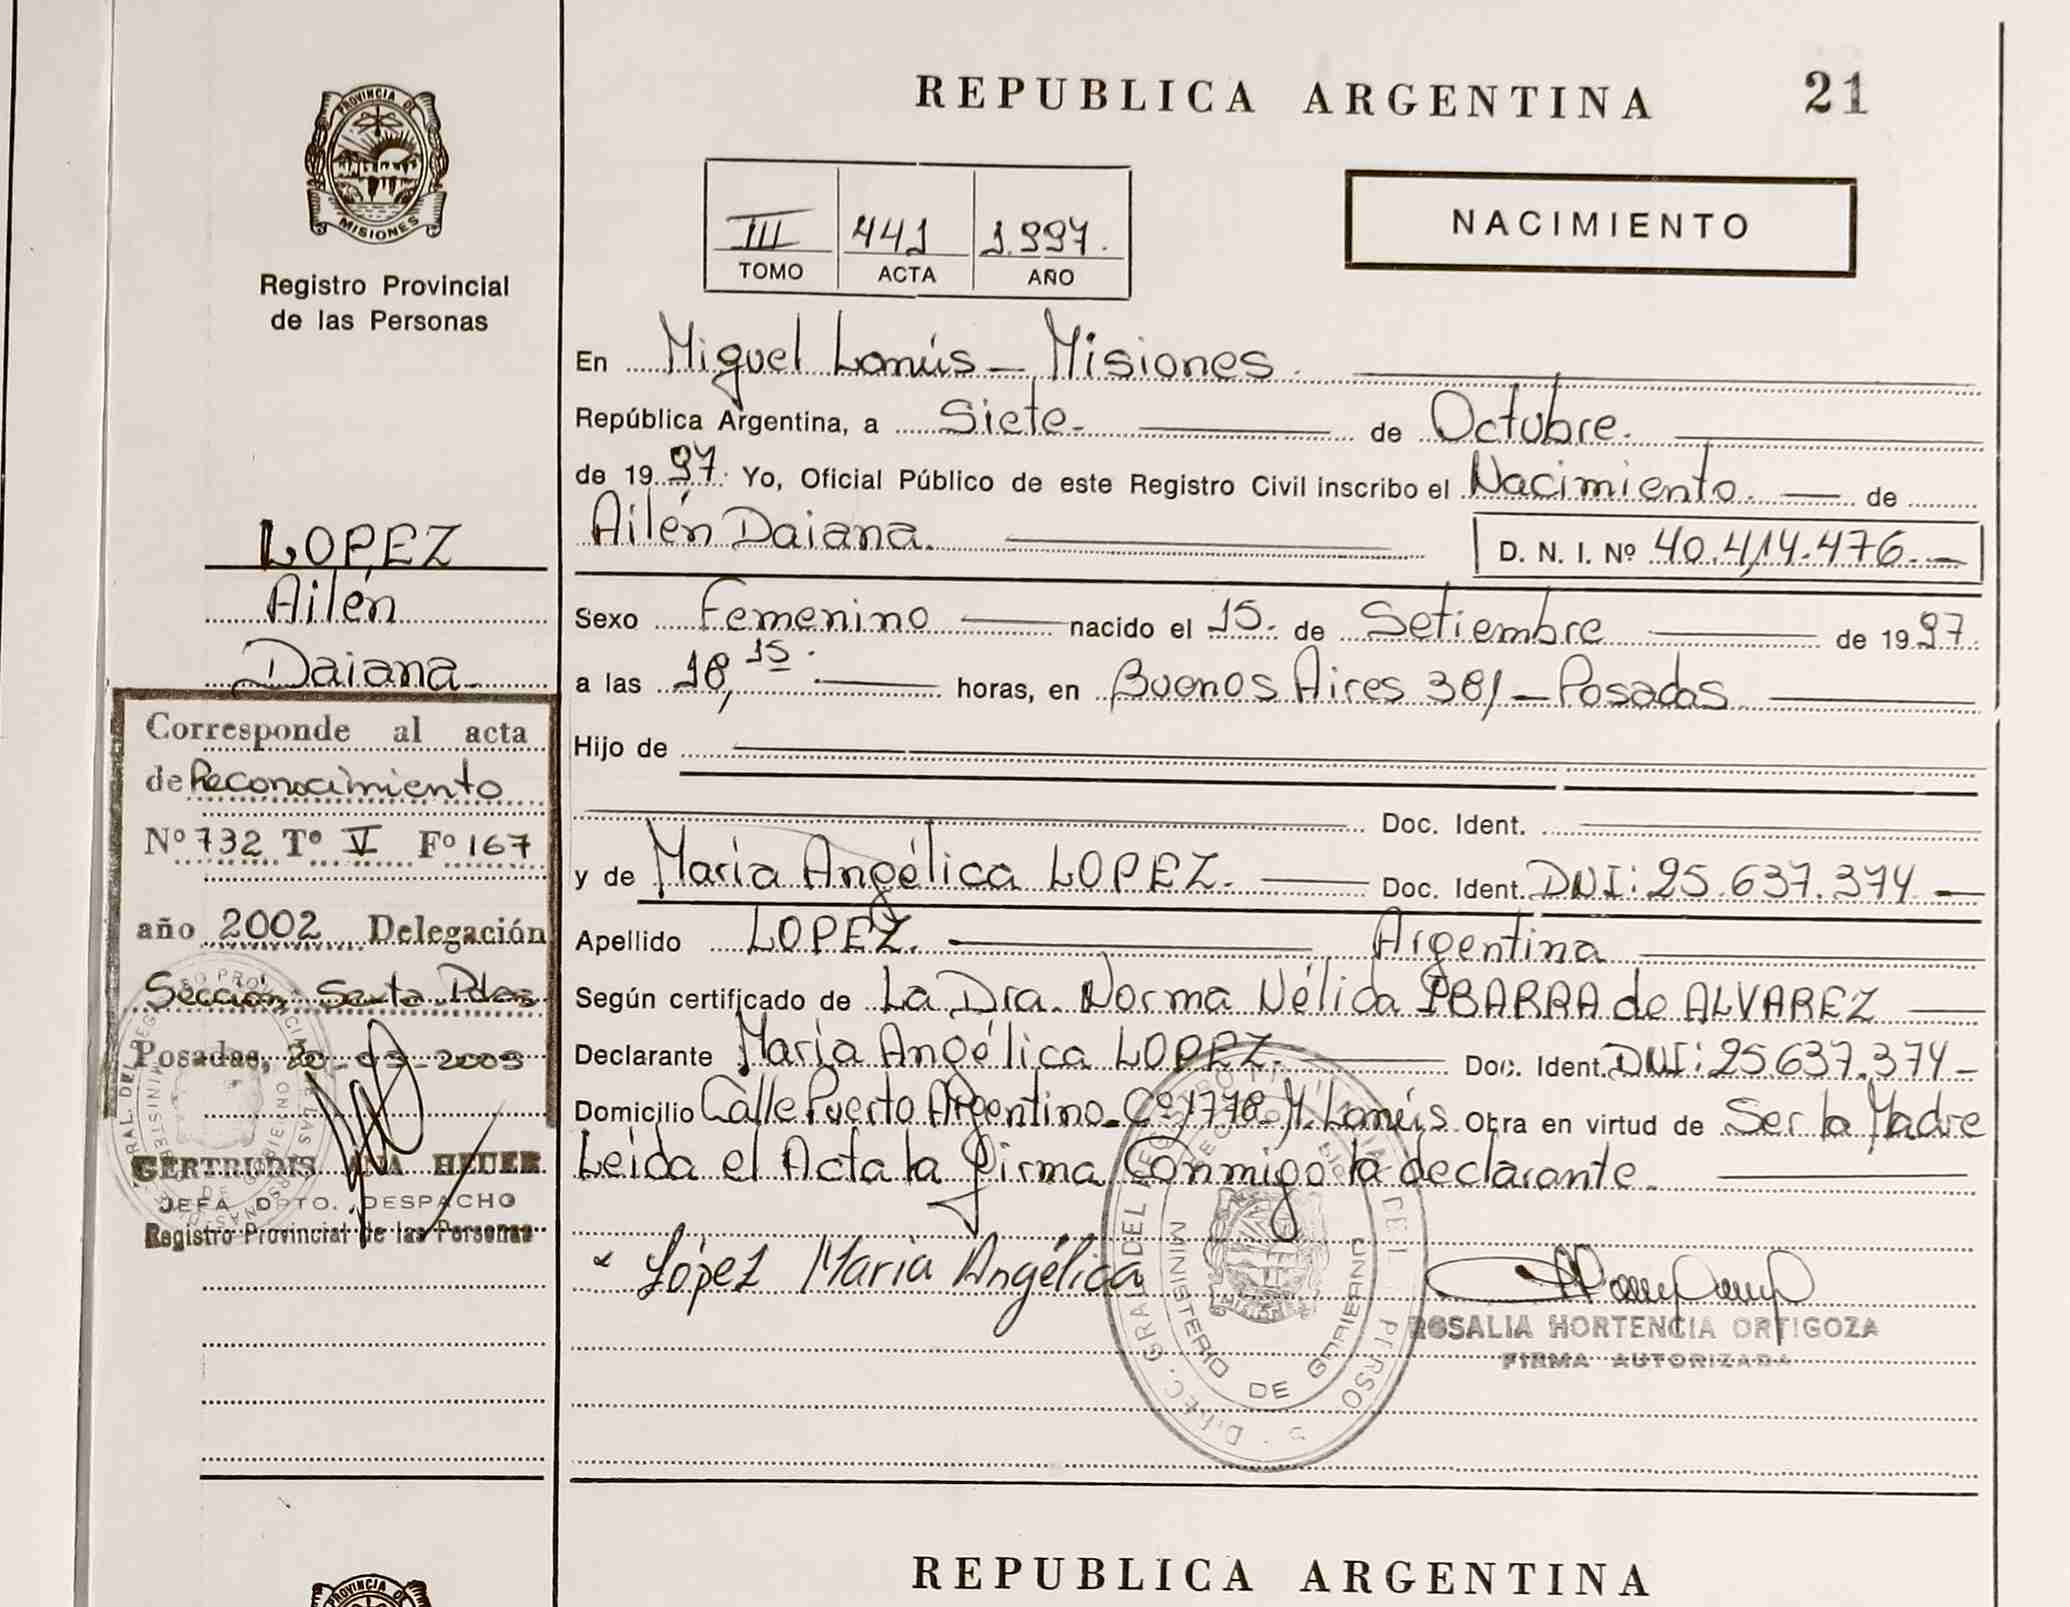 PROVINCIA DE
MISIONES
Registro Provincial
de las Personas
LOPEZ
Ailén
Daiana
Corresponde al acta
de Reconocimiento
Nº 732 Tº V Fº 167
año 2002 Delegación
Sección Sexta Pdas
Posadas, 20-03-2003
GERTRUDIS ANA HEUER
JEFA DPTO. DESPACHO
Registro Provincial de las Personas
REPUBLICA ARGENTINA 21
III 441 1.997.
TOMO ACTA AÑO
NACIMIENTO
En Miguel Lanús - Misiones.
República Argentina, a Siete de Octubre.
de 1997. Yo, Oficial Público de este Registro Civil inscribo el Nacimiento. de
Ailén Daiana. D. N. I. Nº 40.414.476.-
Sexo Femenino nacido el 15. de Setiembre de 1997.
a las 18,15. horas, en Buenos Aires 381 - Posadas
Hijo de
Doc. Ident.
y de Maria Angélica LOPEZ. Doc. Ident. DNI: 25.637.374
Apellido LOPEZ. Argentina
Según certificado de La Dra. Norma Nélida IBARRA de ALVAREZ
Declarante Maria Angélica LOPEZ. Doc. Ident. DNI: 25.637.374
Domicilio Calle Puerto Argentino Cº 1778 M. Lanús Obra en virtud de Ser la Madre
Leída el Acta la firma Conmigo la declarante.
López Maria Angélica
ROSALIA HORTENCIA ORTIGOZA
FIRMA AUTORIZADA
MINISTERIO DE GOBIERNO
REPUBLICA ARGENTINA
PROVINCIA